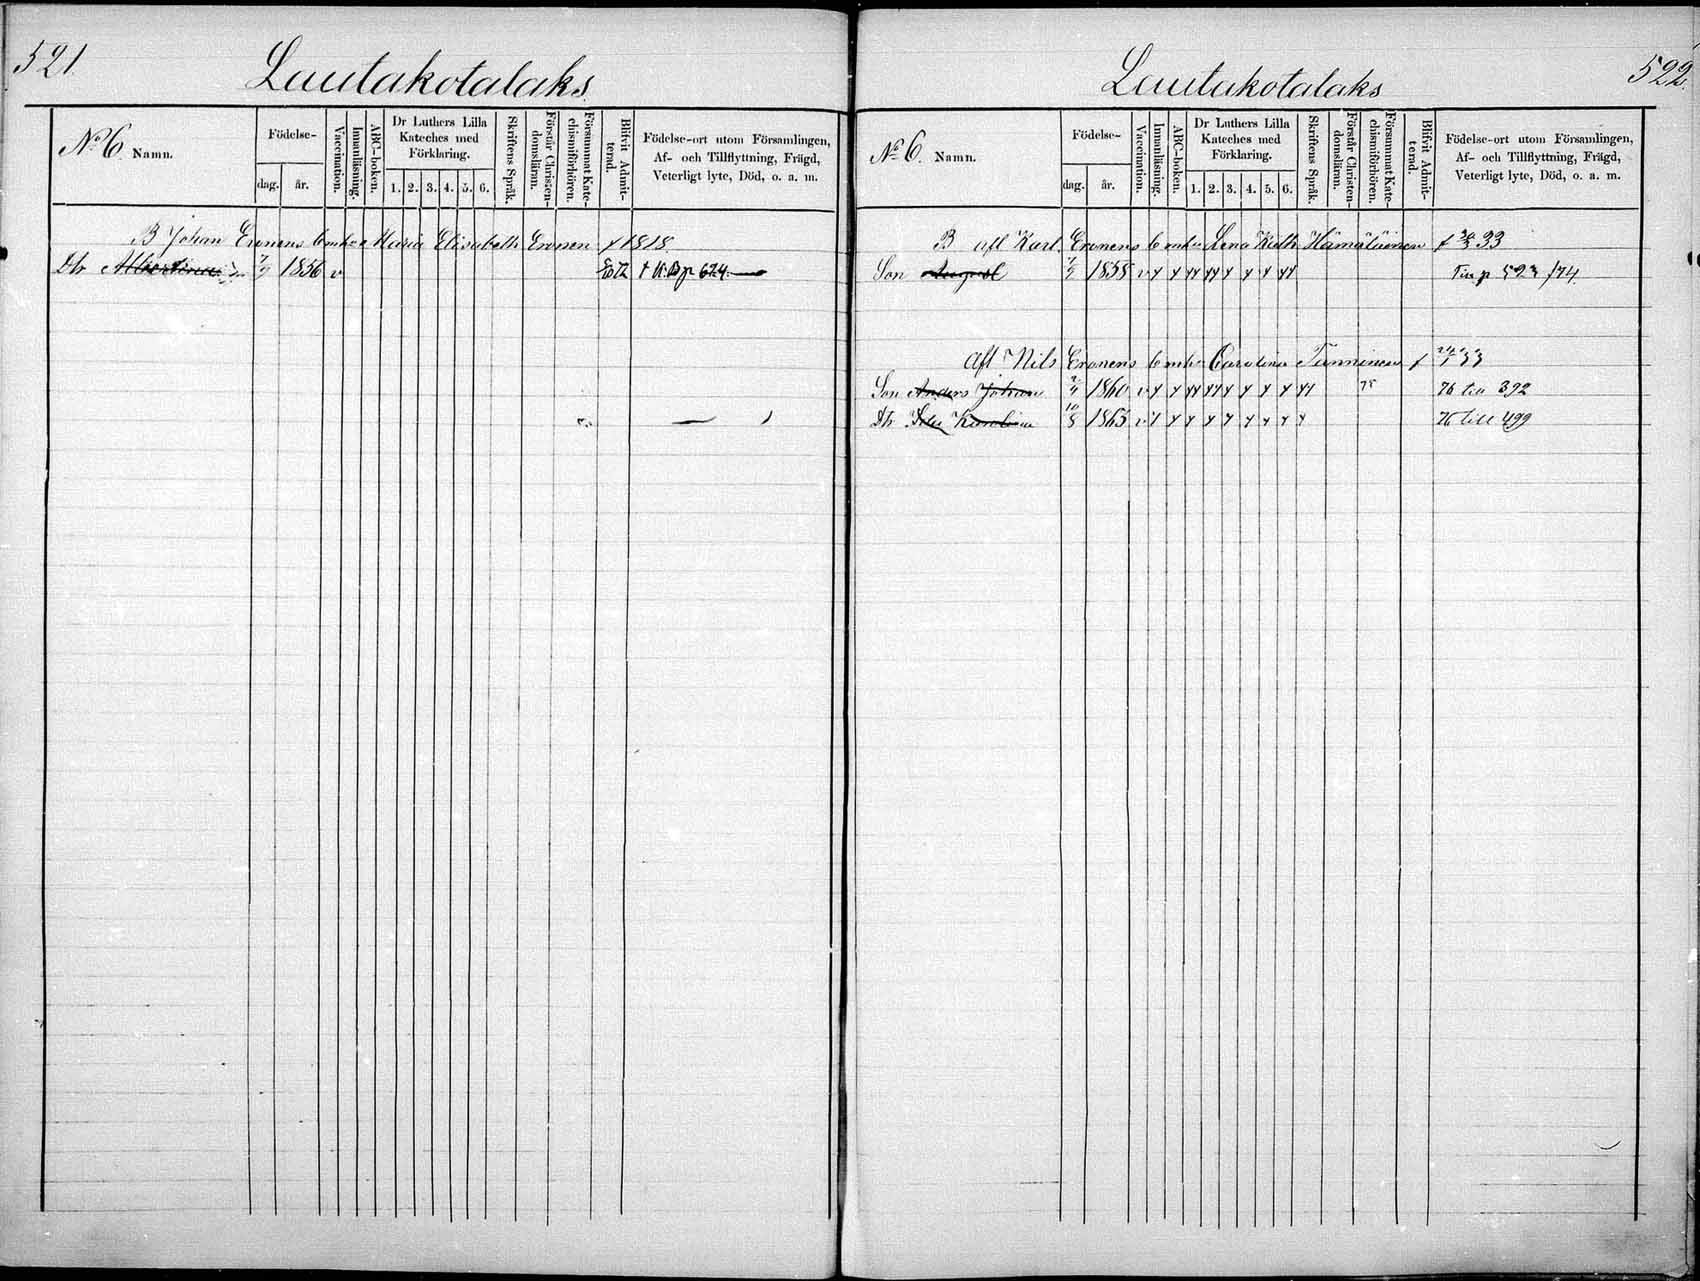 521.
Lautakotalaks
No 6. Namn.
Födelse-
dag. år.
Vaccination.
Innanläsning.
ABC-boken.
Dr Luthers Lilla Kateches med Förklaring.
1. 2. 3. 4. 5. 6.
Skriftens Språk.
Förstår Christen-domsläran.
Försummat Kate-chismiförhören.
Blifvit Admit-terad.
Födelse-ort utom Församlingen, Af- och Tillflyttning, Frägd, Veterligt lyte, Död, o. a. m.
B Johan Eronens Maria Elisabeth Eronen 1818
Dtr Albertina 7/9 1856 v p 624
522.
Lautakotalaks
No 6. Namn.
Födelse-
dag. år.
Vaccination.
Innanläsning.
ABC-boken.
Dr Luthers Lilla Kateches med Förklaring.
1. 2. 3. 4. 5. 6.
Skriftens Språk.
Förstår Christen-domsläran.
Försummat Kate-chismiförhören.
Blifvit Admit-terad.
Födelse-ort utom Församlingen, Af- och Tillflyttning, Frägd, Veterligt lyte, Död, o. a. m.
B afl Karl Eronens Lena Kath Hämäläinen 33
Son August 1858 v p 523 /74
Afl Nils Eronens Carolina Tanninen
Son Anders Johan 1860 v 75 76 till 392
Dtr Karolina 10/8 1863 v 76 till 499